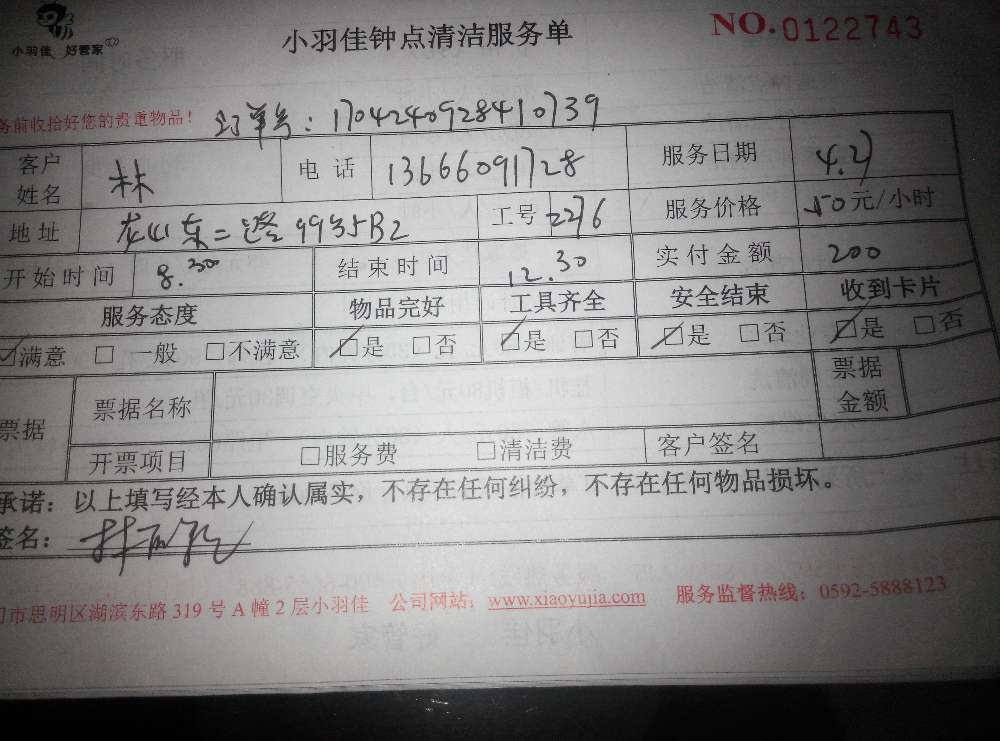 小羽佳 好管家
小羽佳钟点清洁服务单
NO.0122743
务前收拾好您的贵重物品！ 订单号：1704240928410739
客户姓名 林 电话 13666091728 服务日期
地址 9935B2 工号 2276 服务价格 50元/小时
开始时间 结束时间 12.30 实付金额 200
服务态度 物品完好 工具齐全 安全结束 收到卡片
☑满意 □ 一般 □不满意 ☑是 □否 ☑是 □否 ☑是 □否 ☑是 □否
票据 票据名称 票据金额
开票项目 □服务费 □清洁费 客户签名
承诺：以上填写经本人确认属实，不存在任何纠纷，不存在任何物品损坏。
签名：
门市思明区湖滨东路 319 号 A 幢 2 层小羽佳 公司网站：www.xiaoyujia.com 服务监督热线：0592-5888123